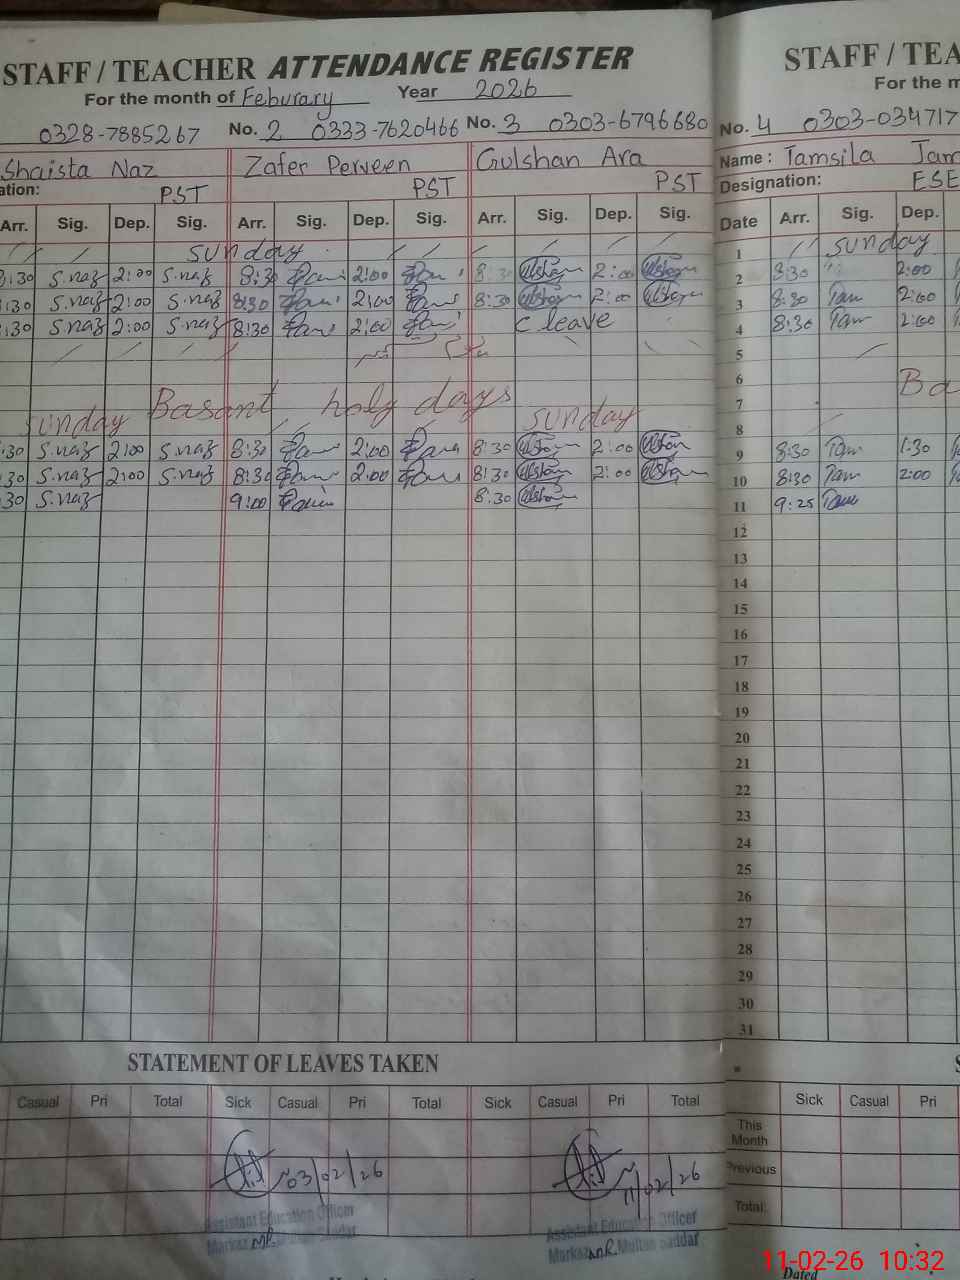 STAFF / TEACHER ATTENDANCE REGISTER
For the month of Feburary Year 2026
0328-7885267 No. 2 0333-7620466 No. 3 0303-6796680
Shaista Naz Zafer Perveen Gulshan Ara
ation: PST PST PST
Arr. Sig. Dep. Sig. Arr. Sig. Dep. Sig. Arr. Sig. Dep. Sig.
Sunday
8:30 S.naz 2:00 S.naz 8:30 2:00 8:30 2:00
:30 S.naz 2:00 S.naz 8:30 2:00 8:30 2:00
:30 S.naz 2:00 S.naz 8:30 2:00 C leave
Basant holy days
Sunday Sunday
:30 S.naz 2:00 S.naz 8:30 2:00 8:30 2:00
:30 S.naz 2:00 S.naz 8:30 2:00 8:30 2:00
:30 S.naz 9:00 8:30
STATEMENT OF LEAVES TAKEN
Casual Pri Total Sick Casual Pri Total Sick Casual Pri Total
03/02/26 11/02/26
Assistant Education Officer Assistant Education Officer
Markaz MR. Multan Saddar Markaz MR. Multan Saddar
STAFF / TEA
For the m
No. 4 0303-034717
Name : Tamsila Jam
Designation: ESE
Date Arr. Sig. Dep.
1 Sunday
2 8:30 2:00
3 8:30 Tam 2:00
4 8:30 Tam 2:00
5
6
7 Ba
8
9 8:30 Tam 1:30
10 8:30 Tam 2:00
11 9:25 Tam
12
13
14
15
16
17
18
19
20
21
22
23
24
25
26
27
28
29
30
31
Sick Casual Pri
This Month
Previous
Total
Dated
11-02-26 10:32